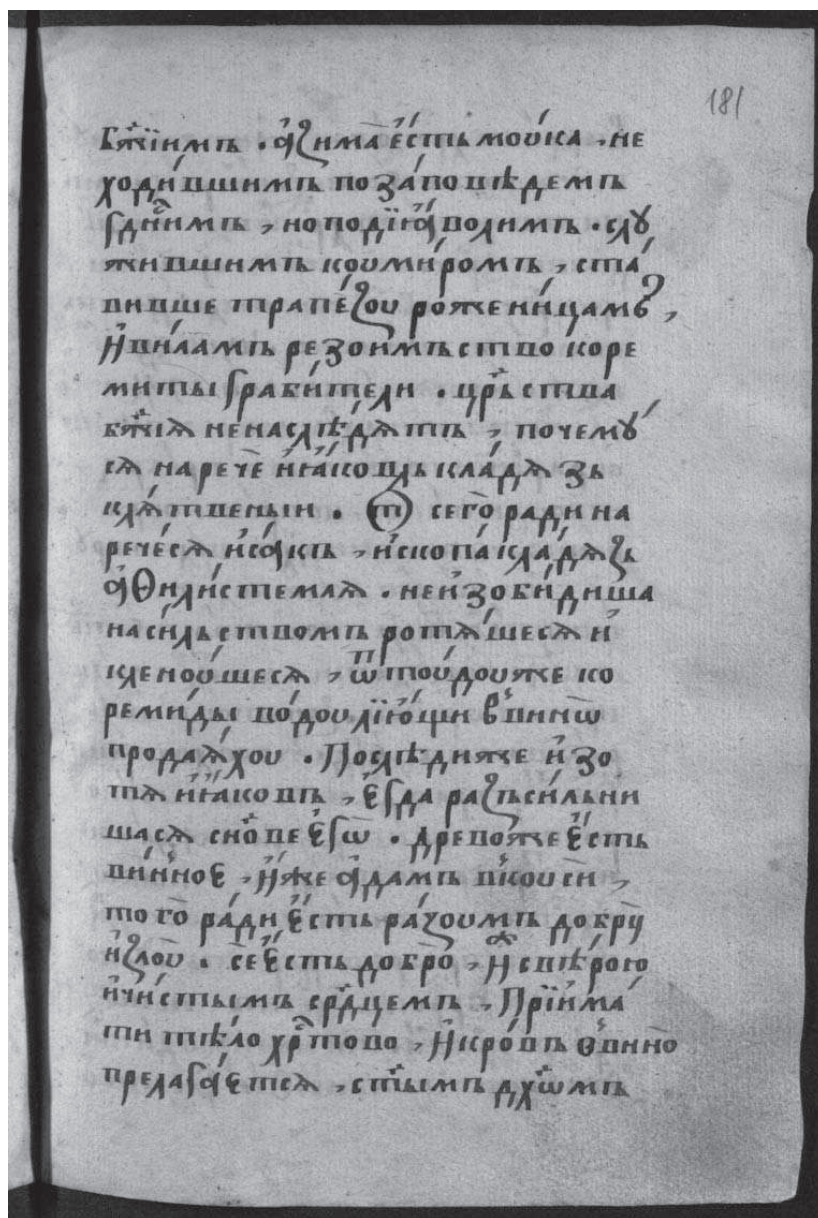 181
бж҃їимъ . а҆зима є҆сть моу́ка . не
ходи́вшимъ по за́повѣдемъ
гдн҃имъ , но подїꙗ҆́волимъ . слꙋ
жившимъ коуми́ромъ , ста́
вивше трапе́зоу роженицамъ ,
и҆ви́ламъ резоимъство коре
миты грабители . црⷭ҇ьства
бж҃їѧ ненаслѣ́дѧтъ , почемꙋ́
сѧ нарече и҆ꙗ҆́ковль кла́дѧзь
клѧ́твеныи . ѿ сего̀ ради на
рече́сѧ и҆са́къ , и҆скопа́ кла́дѧзь
а҆ѳили́стемлѧ . неи҆зоби́диша
наси́льствомъ ротѧ́шесѧ и҆
клену́щесѧ , ѿтоу́доуже ко
реми́ды во́доулїю́щи в̾вино
продаѧ́хоу . Послѣ́диже и҆зо
тѧ и҆ꙗ҆́ковъ , є҆гда разъси́льни
шасѧ сн҃ове є҆́гѡ . древоже є҆сть
ви́нное , и҆́же а҆да́мъ вкоуси ,
того̀ ра́ди є҆сть ра́зоумъ добрꙋ̀
и҆злоу̀ . се є҆сть добро̀ , и҆́же свѣ́рою
и҆чи́стымъ срⷣцемъ , Прїи́ма́
ти тѣ́ло хрⷭ҇тово , и҆кро́въ в̾вино̀
прелага́єтсѧ , ст҃ымъ дх҃ѡмъ